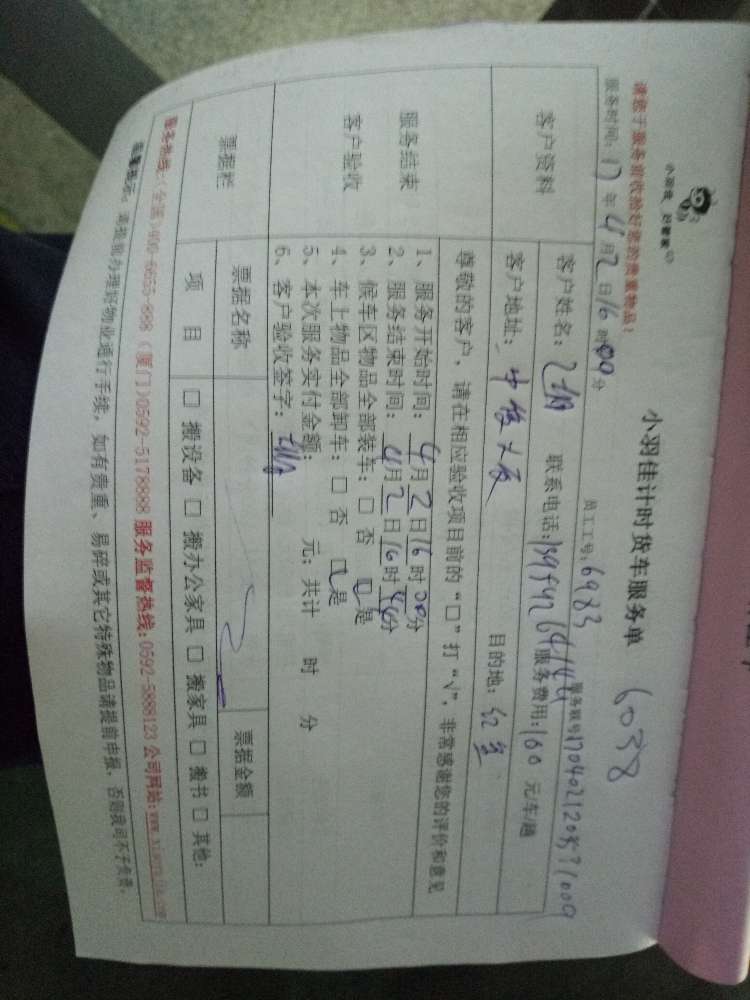 小羽佳 好管家
小羽佳计时货车服务单 6038
请您于服务前收拾好您的贵重物品!
服务时间: 17 年 4 月 2 日 16 时 00 分 员工工号: 6983 服务账号
客户资料
客户姓名: 联系电话: 服务费用: 160 元/车/趟
客户地址: 目的地:
尊敬的客户, 请在相应验收项目前的“□”打“√”, 非常感谢您的评价和意见
服务结束
客户验收
1、服务开始时间: 4月 2 日 16 时 00 分
2、服务结束时间: 4月 2 日 16 时 分
3、候车区物品全部装车: □ 否 □ 是
4、车上物品全部卸车: □ 否 □ 是
5、本次服务实付金额: 元; 共计 时 分
6、客户验收签字:
票据栏 票据名称 票据金额
项 目 □ 搬设备 □ 搬办公家具 □ 搬家具 □ 搬书 □ 其他:
服务热线:(全国)400-6655-888 (厦门)0592-5178888 服务监督热线:0592-5888123 公司网站:www.xiaoyujia.com
温馨提示: 请提前办理好物业通行手续, 如有贵重、易碎或其它特殊物品请提前申报, 否则我司不予负责。